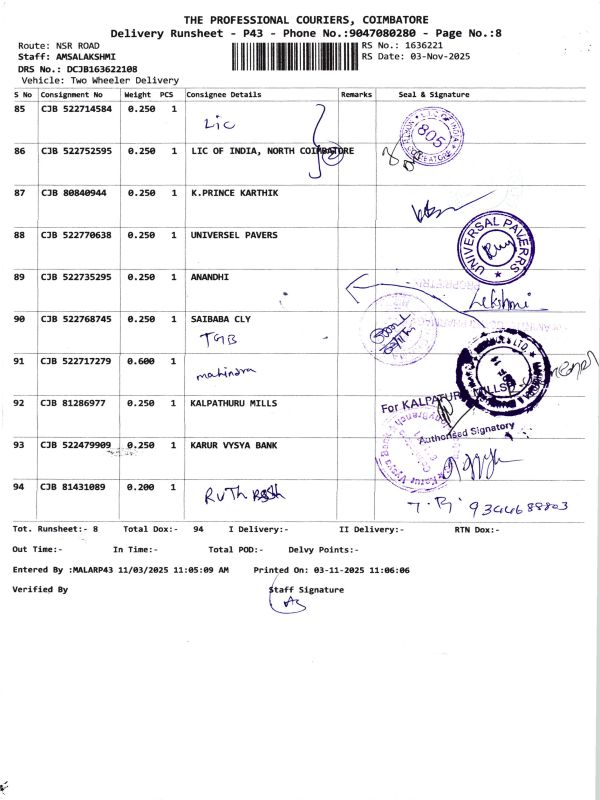 THE PROFESSIONAL COURIERS, COIMBATORE
Delivery Runsheet - P43 - Phone No.:9047080280 - Page No.:8
Route: NSR ROAD RS No.: 1636221
Staff: AMSALAKSHMI RS Date: 03-Nov-2025
DRS No.: DCJB163622108
Vehicle: Two Wheeler Delivery
S No Consignment No Weight PCS Consignee Details Remarks Seal & Signature
85 CJB 522714584 0.250 1 LIC
805
86 CJB 522752595 0.250 1 LIC OF INDIA, NORTH COIMBATORE
87 CJB 80840944 0.250 1 K.PRINCE KARTHIK
88 CJB 522770638 0.250 1 UNIVERSEL PAVERS
UNIVERSAL PAVERRS
89 CJB 522735295 0.250 1 ANANDHI
Lekshmi
90 CJB 522768745 0.250 1 SAIBABA CLY
TGB
91 CJB 522717279 0.600 1 mahindra
92 CJB 81286977 0.250 1 KALPATHURU MILLS
For KALPATURU MILLS
Authorised Signatory
93 CJB 522479909 0.250 1 KARUR VYSYA BANK
94 CJB 81431089 0.200 1 RUTH
9344688803
Tot. Runsheet:- 8 Total Dox:- 94 I Delivery:- II Delivery:- RTN Dox:-
Out Time:- In Time:- Total POD:- Delvy Points:-
Entered By :MALARP43 11/03/2025 11:05:09 AM Printed On: 03-11-2025 11:06:06
Verified By Staff Signature